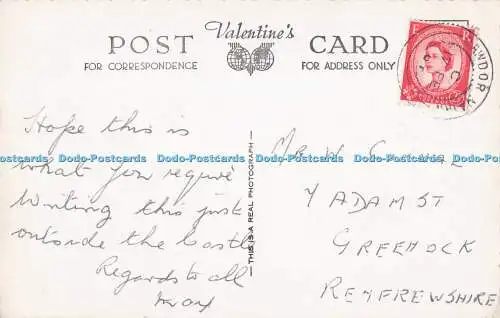 Valentine's
POST CARD
FOR CORRESPONDENCE FOR ADDRESS ONLY
CAWDOR
Hope this is
Dodo-Postcards Dodo-Postcards Dodo-Postcards Dodo-Postcards Dodo-Postcards
what you require
Writing this just
outside the Castle
Regards to all
THIS IS A REAL PHOTOGRAPH
MR W
7 ADAM ST
GREENOCK
RENFREWSHIRE